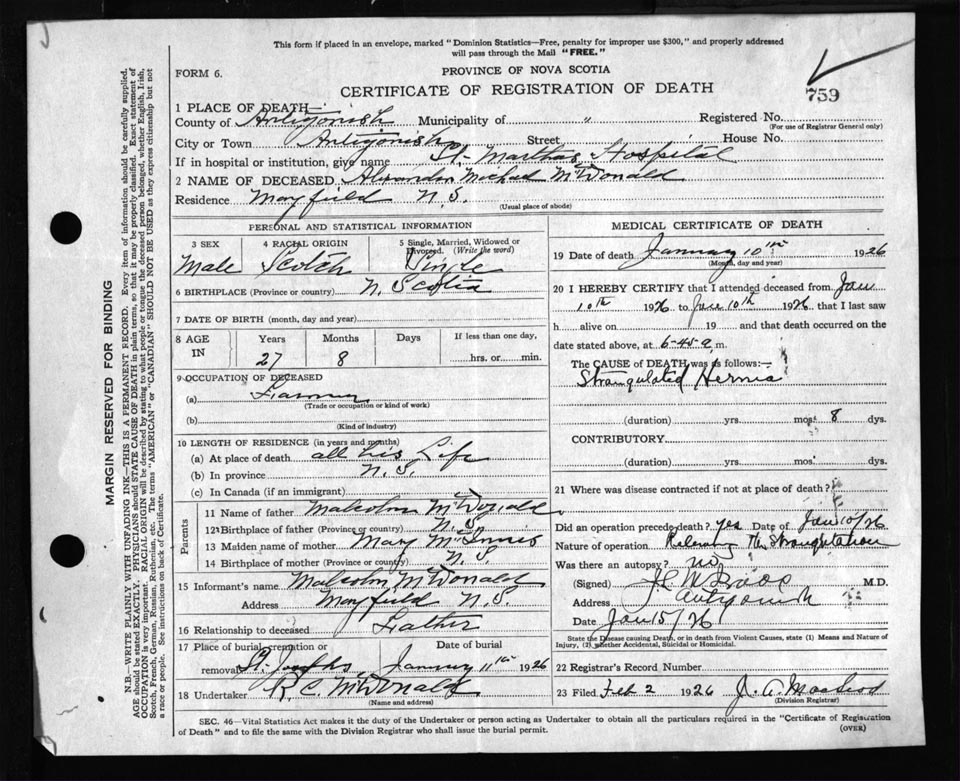 This form if placed in an envelope, marked "Dominion Statistics—Free, penalty for improper use $300," and properly addressed
will pass through the Mail "FREE."
FORM 6.
PROVINCE OF NOVA SCOTIA
CERTIFICATE OF REGISTRATION OF DEATH
759
1 PLACE OF DEATH—
County of Antigonish Municipality of " Registered No.
(For use of Registrar General only)
City or Town Antigonish Street House No.
If in hospital or institution, give name St. Marthas Hospital
2 NAME OF DECEASED Alexander Michael McDonald
Residence Mayfield N.S.
(Usual place of abode)
PERSONAL AND STATISTICAL INFORMATION
3 SEX 4 RACIAL ORIGIN 5 Single, Married, Widowed or
Divorced. (Write the word)
Male Scotch Single
6 BIRTHPLACE (Province or country) N. Scotia
7 DATE OF BIRTH (month, day and year)
8 AGE Years Months Days If less than one day,
IN 27 8 hrs. or min.
9 OCCUPATION OF DECEASED
(a) Farmer
(Trade or occupation or kind of work)
(b)
(Kind of industry)
10 LENGTH OF RESIDENCE (in years and months)
(a) At place of death all his Life
(b) In province N.S.
(c) In Canada (if an immigrant)
Parents
11 Name of father Malcolm McDonald
12 Birthplace of father (Province or country) N.S.
13 Maiden name of mother Mary McInnis
14 Birthplace of mother (Province or country) N.S.
15 Informant's name Malcolm McDonald
Address Mayfield N.S.
16 Relationship to deceased Father
17 Place of burial, cremation or Date of burial
removal St. Josephs January 11th 1926
18 Undertaker R. C. McDonald
(Name and address)
MEDICAL CERTIFICATE OF DEATH
19 Date of death January 10th 1926
(Month, day and year)
20 I HEREBY CERTIFY that I attended deceased from Jan
10th 1926 to Jan 10th 1926 that I last saw
h alive on 19 and that death occurred on the
date stated above, at 6-45 a m.
The CAUSE OF DEATH was as follows:—
Strangulated Hernia
(duration) yrs. mos. 8 dys.
CONTRIBUTORY
(duration) yrs. mos. dys.
21 Where was disease contracted if not at place of death?
Did an operation precede death? yes Date of Jan 10/26
Nature of operation Relieving the Strangulation
Was there an autopsy? no
(Signed) M.D.
Address Antigonish
Date Jan 15/26
State the Disease causing Death, or in death from Violent Causes, state (1) Means and Nature of
Injury, (2) whether Accidental, Suicidal or Homicidal.
22 Registrar's Record Number
23 Filed Feb 2 1926 J. A. MacLeod
(Division Registrar)
SEC. 46—Vital Statistics Act makes it the duty of the Undertaker or person acting as Undertaker to obtain all the particulars required in the "Certificate of Registration
of Death" and to file the same with the Division Registrar who shall issue the burial permit.
(OVER)
MARGIN RESERVED FOR BINDING
N.B.—WRITE PLAINLY WITH UNFADING INK—THIS IS A PERMANENT RECORD. Every item of information should be carefully supplied.
AGE should be stated EXACTLY. PHYSICIANS should STATE CAUSE OF DEATH in plain terms, so that it may be properly classified. Exact statement of
OCCUPATION is very important. RACIAL ORIGIN will be described by stating to what people or tongue the deceased person belonged, whether English, Irish,
Scotch, French, German, Russian, Ruthenian, etc. The terms "AMERICAN" or "CANADIAN" SHOULD NOT BE USED as they express citizenship but not
a race or people. See instructions on back of Certificate.